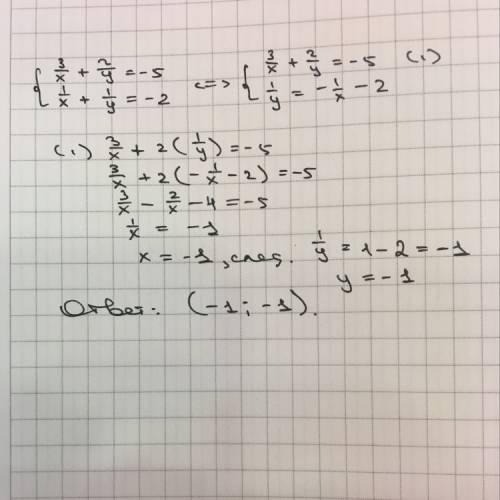 { 3/x + 2/y = -5 <=> { 3/x + 2/y = -5 (1)
{ 1/x + 1/y = -2 { 1/y = -1/x - 2
(1) 3/x + 2(1/y) = -5
3/x + 2(-1/x - 2) = -5
3/x - 2/x - 4 = -5
1/x = -1
x = -1, след. 1/y = 1 - 2 = -1
y = -1
Ответ: (-1; -1).